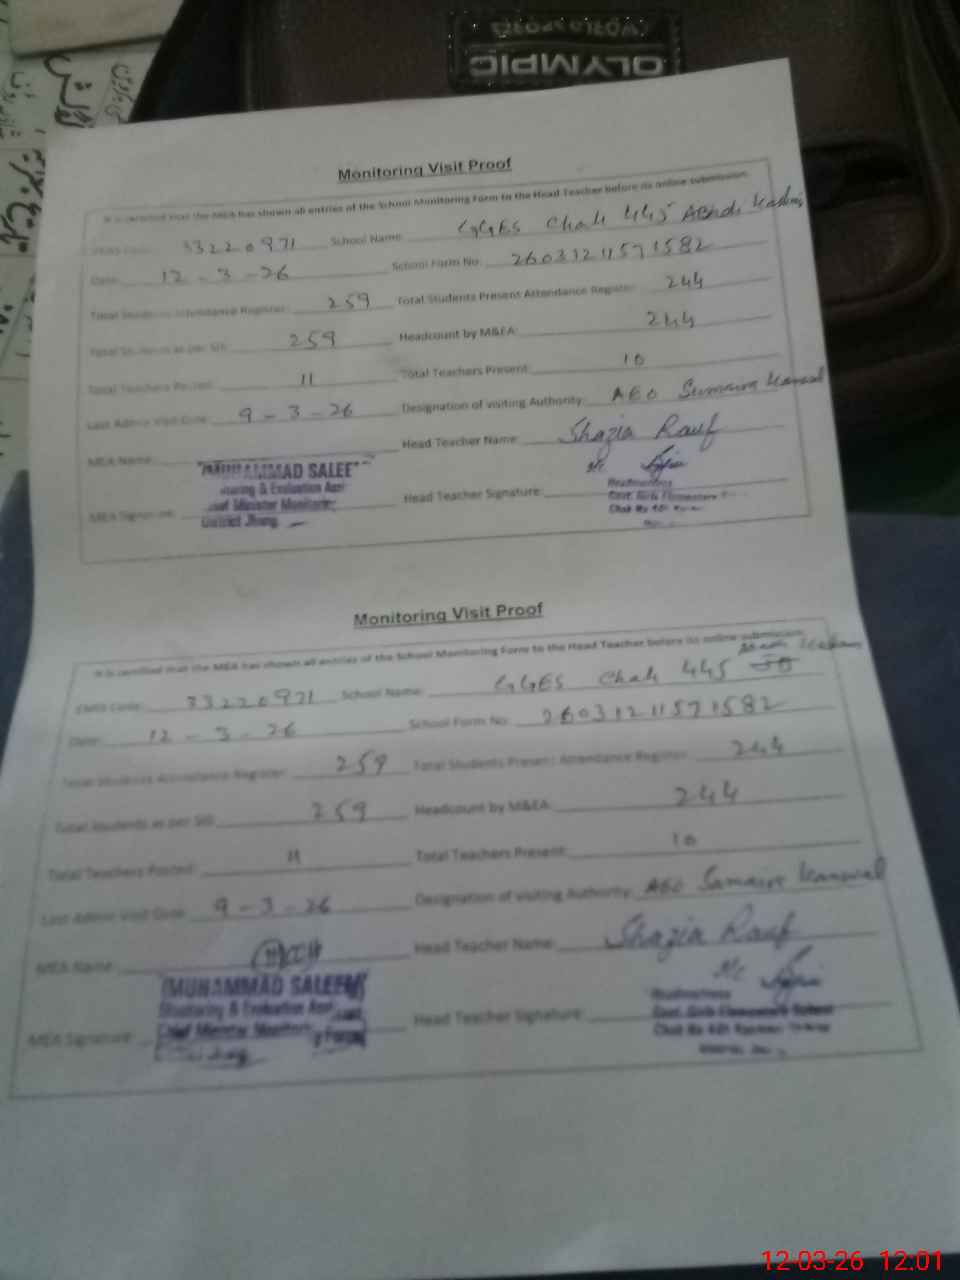 WORLD SPORTS
OLYMPIC
Monitoring Visit Proof
It is certified that the MEA has shown all entries of the School Monitoring Form to the Head Teacher before its online submission.
EMIS Code: 33220971 School Name: GGES Chak 445
Date: 12-3-26 School Form No: 26031211571582
Total Students Attendance Register: 259 Total Students Present Attendance Register: 244
Total Students as per SIS: 259 Headcount by M&EA: 244
Total Teachers Posted: 11 Total Teachers Present: 10
Last Admin Visit Date: 9-3-26 Designation of visiting Authority: AEO Sumaira Kanwal
MEA Name: Head Teacher Name: Shazia Rauf
MUHAMMAD SALEE
itoring & Evaluation Assi
ief Minister Monitorin
District Jhang
MEA Signature: Head Teacher Signature:
Headmistress
Govt. Girls Elementary
Chak No
Monitoring Visit Proof
It is certified that the MEA has shown all entries of the School Monitoring Form to the Head Teacher before its online submission.
EMIS Code: 33220971 School Name: GGES Chak 445 JB
Date: 12-3-26 School Form No: 26031211571582
Total Students Attendance Register: 259 Total Students Present Attendance Register: 244
Total Students as per SIS: 259 Headcount by M&EA: 244
Total Teachers Posted: 11 Total Teachers Present: 10
Last Admin Visit Date: 9-3-26 Designation of visiting Authority: AEO Sumaira Kanwal
MEA Name: Head Teacher Name: Shazia Rauf
MUHAMMAD SALEEM
Monitoring & Evaluation Assistant
Chief Minister Monitoring Force
MEA Signature: Head Teacher Signature:
Headmistress
Govt. Girls Elementary School
Chak No
12-03-26 12:01